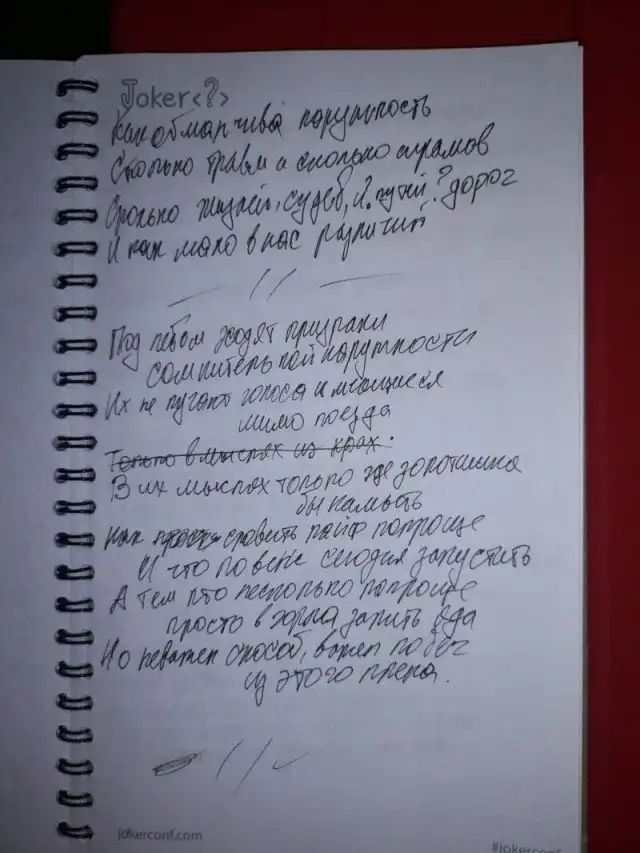 Joker<?>
Как обманчива наружность
Сколько травм и сколько шрамов
Сколько жизней, судеб, и путей? дорог
И как мало в нас различий
Под небом ходят призраки
сомнительной наружности
Их не пугают голоса и мчащиеся
мимо поезда
Только в мыслях их крах.
В их мыслях только где золотишка
бы намыть
Как просто словить кайф попроще
И что по вене сегодня запустить
А тем кто несколько попроще
просто в горла залить яда
Но неважен способ, важен побег
из этого плена.
jokerconf.com
#jokerconf